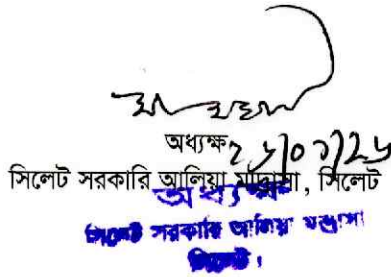 অধ্যক্ষ
সিলেট সরকারি আলিয়া মাদ্রাসা, সিলেট
অধ্যক্ষ
সিলেট সরকারি আলিয়া মাদ্রাসা
সিলেট।